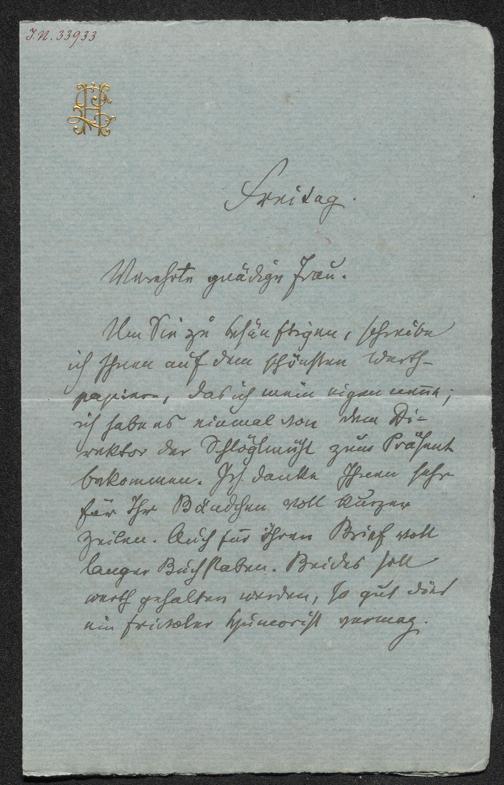 J.N. 33933
Freitag.
Verehrte gnädige Frau.
Um Sie zu besänftigen, schreibe
ich Ihnen auf dem schönsten Werth-
papiere, das ich mein eigen nenne;
ich habe es einmal von dem Di-
rektor der Schlöglmühl zum Präsent
bekommen. Ich danke Ihnen sehr
für Ihr Bändchen voll kurzer
Zeilen. Auch für Ihren Brief voll
langer Buchstaben. Beides soll
werth gehalten werden, so gut dies
ein frivoler Humorist vermag.